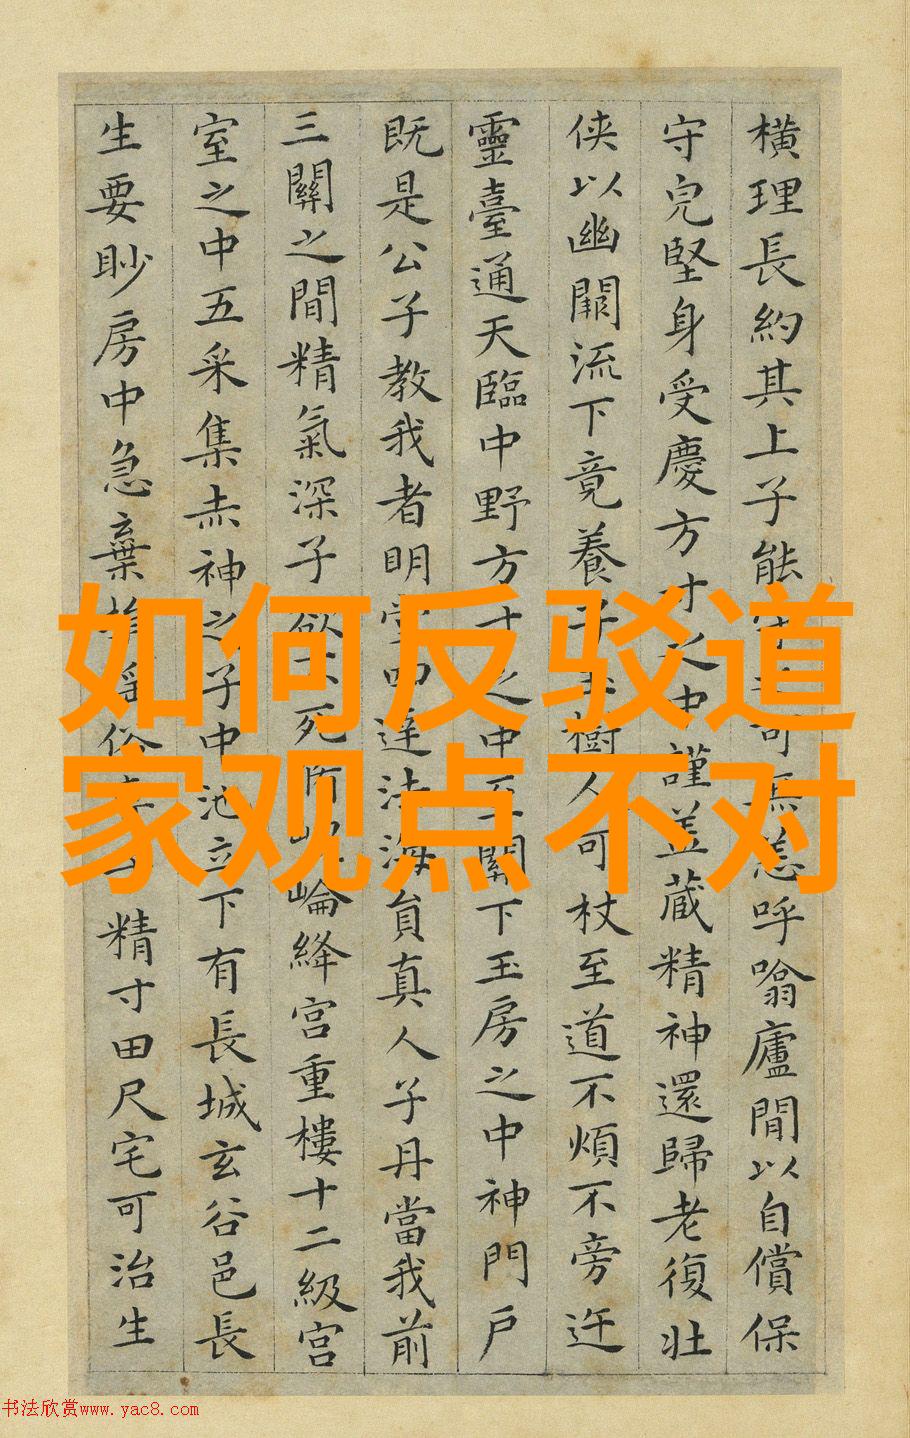 橫理長約其上子能守可無恙呼噏廬間以自償保
守皃堅身受慶方寸之中謹盖藏精神還歸老復壯
侠以幽闕流下竟養子樹人可杖至道不煩不旁迕
靈臺通天臨中野方寸之中至關下玉房之中神門戶
既是公子教我者明堂四達法海員真人子丹當我前
三關之間精氣深子欲不死崙絳宮重樓十二級宮
室之中五采集赤神之子中池立下有長城玄谷邑長
生要眇房中急棄捐淫俗子精寸田尺宅可治生
如何反驳道
家观点不对
书法欣赏www.yac8.com